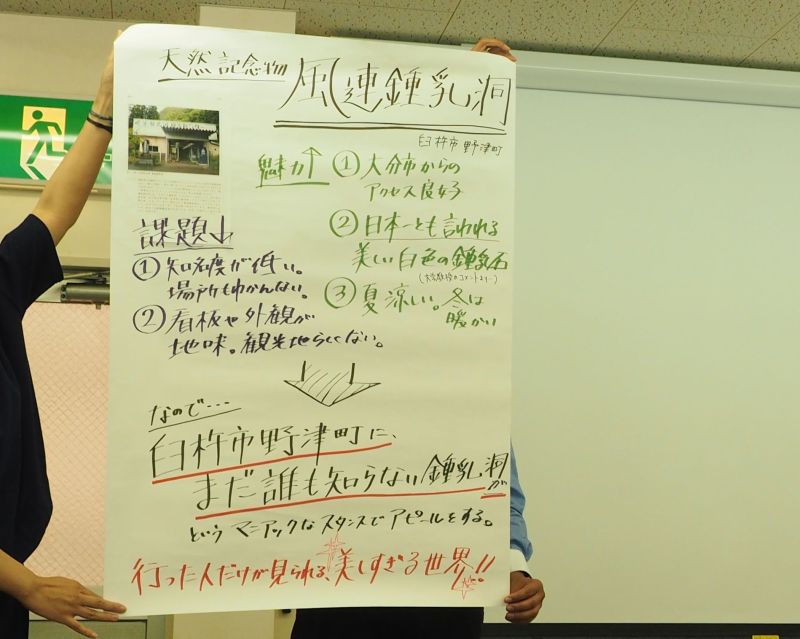 天然記念物 風連鍾乳洞
臼杵市 野津町
魅力↑
① 大分市からの
アクセス良好
② 日本一とも言われる
美しい白色の鍾乳石
③ 夏涼しい。冬は
暖かい
課題↓
① 知名度が低い。
場所もわかんない。
② 看板や外観が
地味。観光地らしくない。
なので…
臼杵市野津町に、
まだ誰も知らない鍾乳洞が
という マニアックなスタンスでアピールをする。
行った人だけが見られる、美しすぎる世界!!